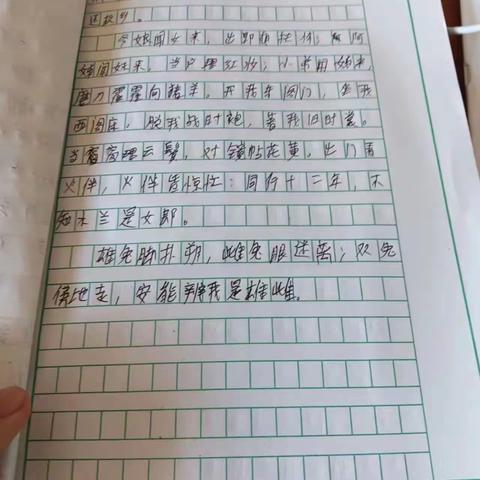 还故乡。
爷娘闻女来，出郭相扶将；阿
姊闻妹来，当户理红妆；小弟闻姊来，
磨刀霍霍向猪羊。开我东阁门，坐我
西阁床，脱我战时袍，著我旧时裳。
当窗理云鬓，对镜帖花黄。出门看
火伴，火伴皆惊忙：同行十二年，不
知木兰是女郎。
雄兔脚扑朔，雌兔眼迷离；双兔
傍地走，安能辨我是雄雌。